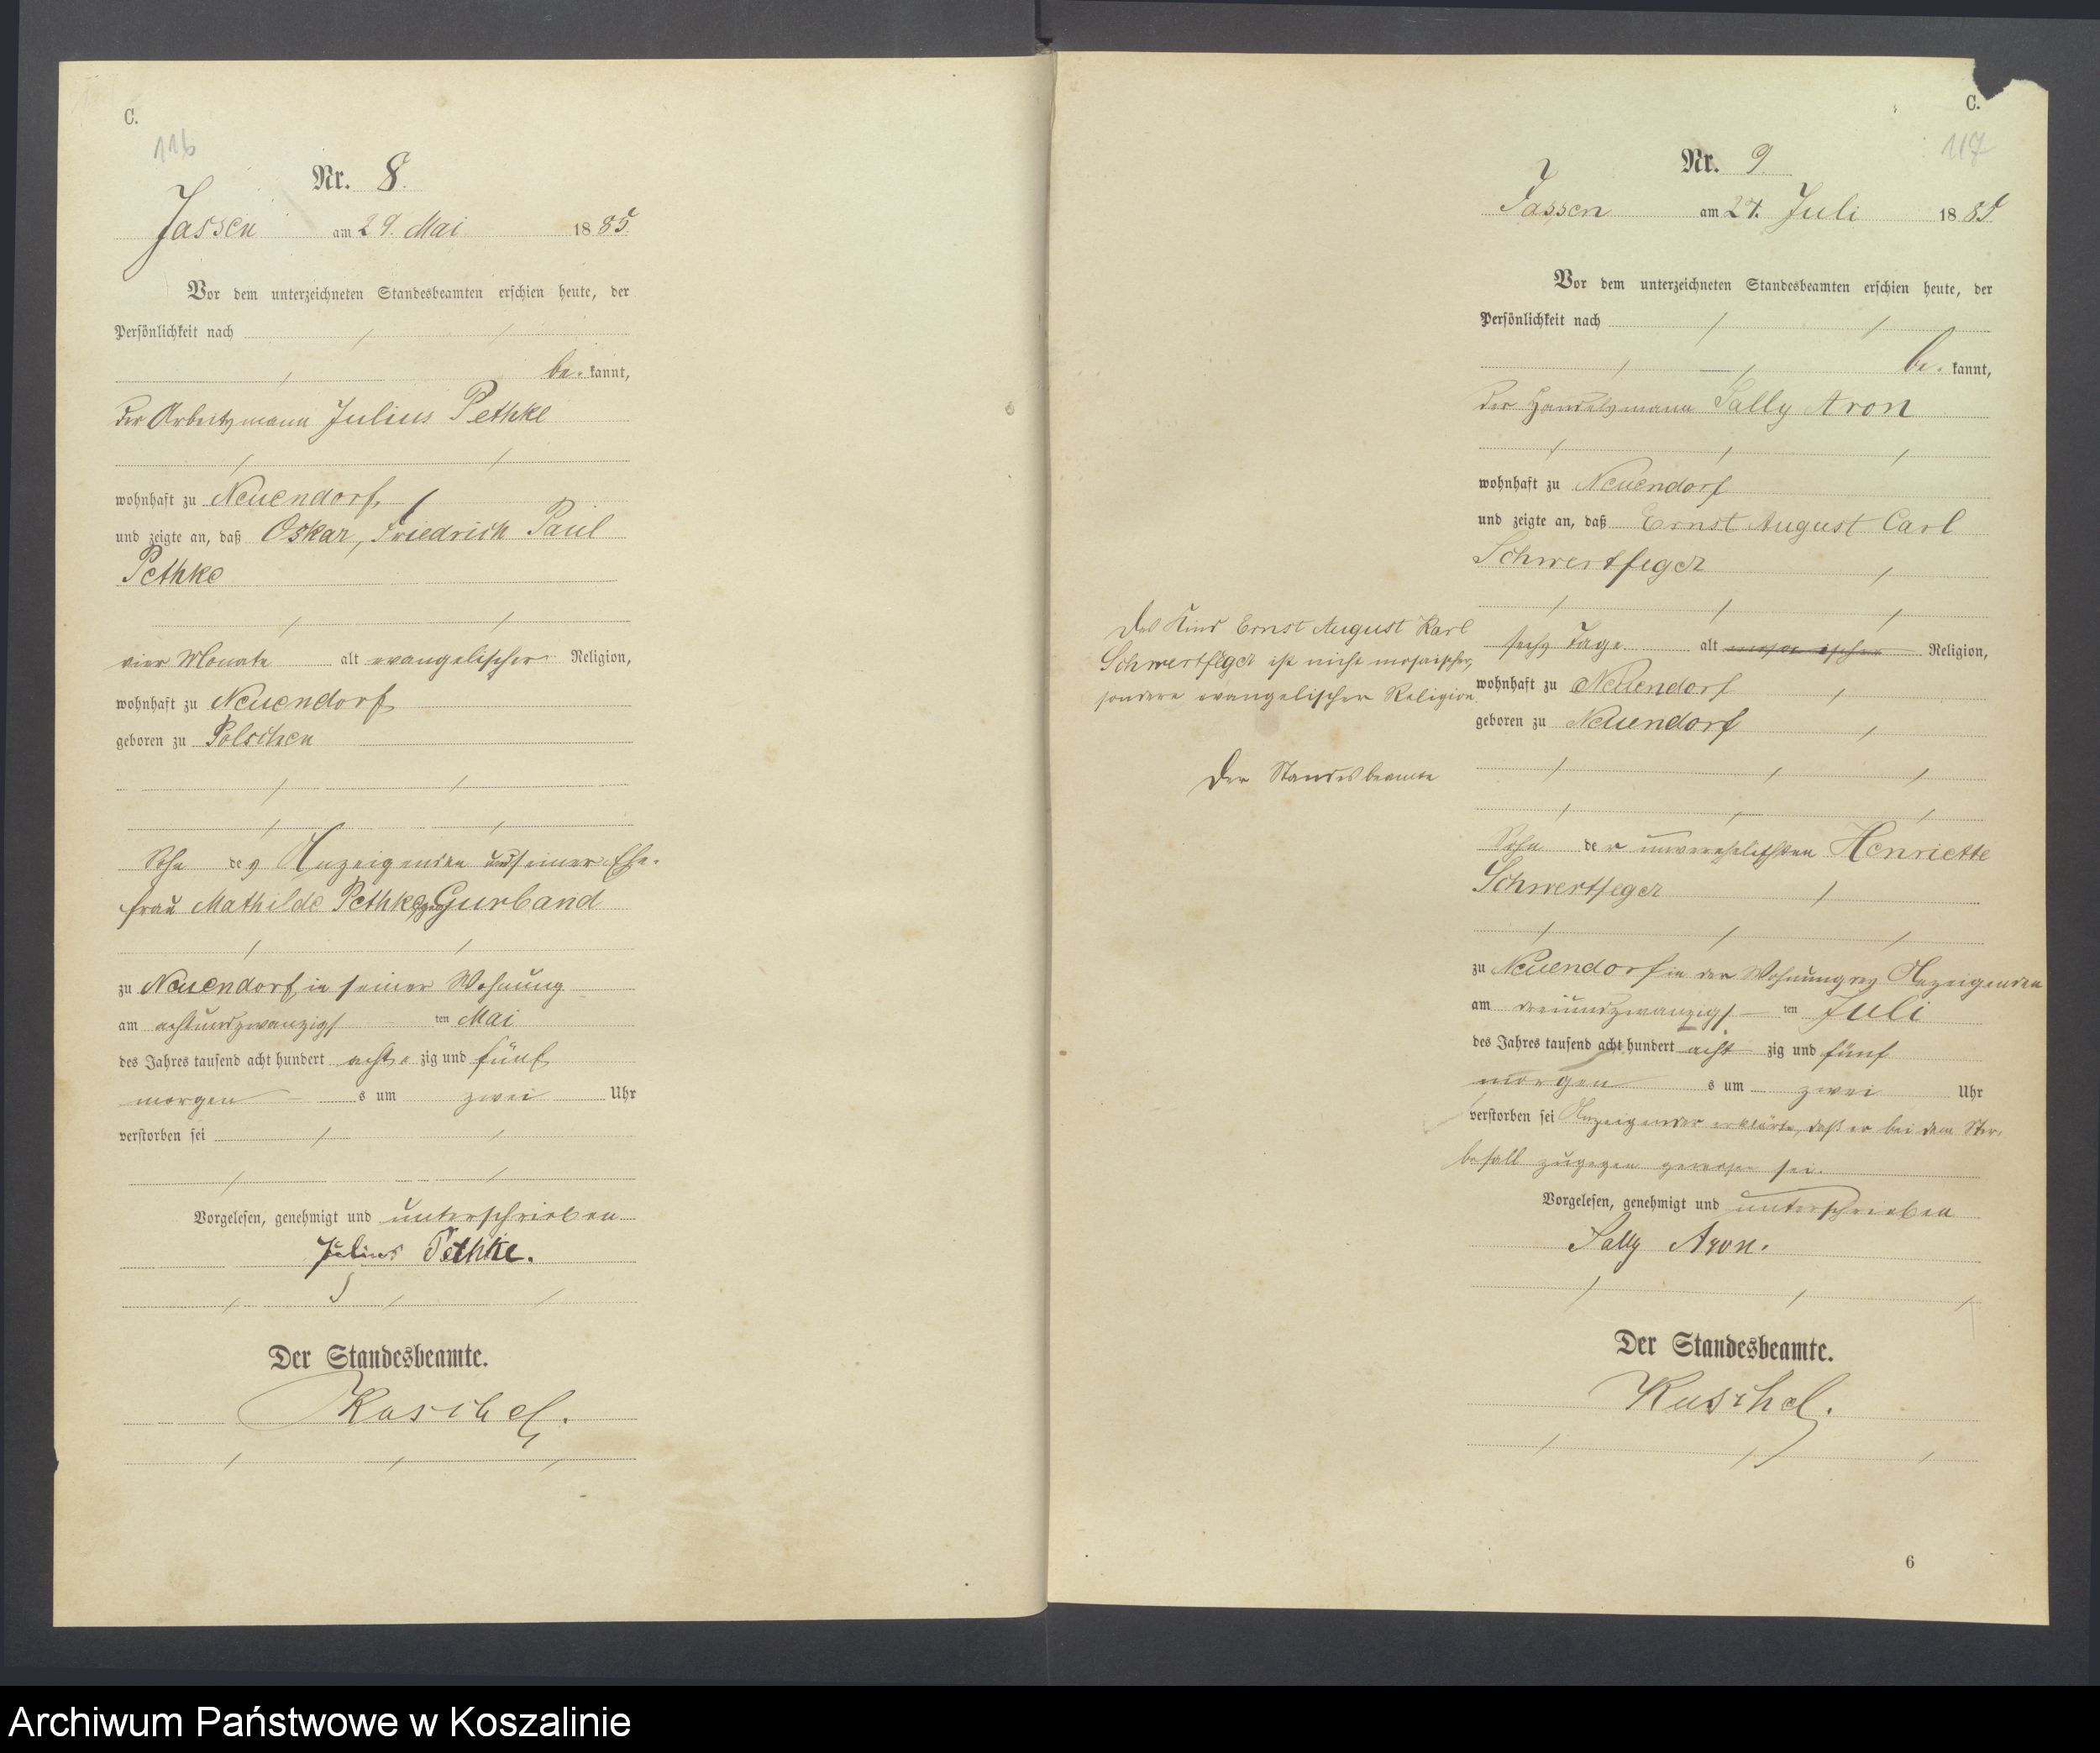 C.
116
Nr. 8.
Jassen am 29. Mai 1885.
Vor dem unterzeichneten Standesbeamten erschien heute, der
Persönlichkeit nach
be- kannt,
der Arbeitsmann Julius Pethke
wohnhaft zu Neuendorf,
und zeigte an, daß Oskar, Friedrich Paul
Pethke
vier Monate alt evangelischer Religion,
wohnhaft zu Neuendorf
geboren zu Polschen
Sohn des Anzeigenden und seiner Ehe-
frau Mathilde Pethke geb. Gurband
zu Neuendorf, in seiner Wohnung
am achtundzwanzigsten Mai
des Jahres tausend acht hundert acht- zig und fünf
morgens um zwei Uhr
verstorben sei
Vorgelesen, genehmigt und unterschrieben
Julius Pethke.
Der Standesbeamte.
Kuschel.
C.
117
Nr. 9.
Jassen am 24. Juli 1885
Vor dem unterzeichneten Standesbeamten erschien heute, der
Persönlichkeit nach
be- kannt,
der Handelsmann Sally Aron
wohnhaft zu Neuendorf
und zeigte an, daß Ernst August Carl
Schwertfeger
sechs Tage alt mosaischer Religion,
wohnhaft zu Neuendorf
geboren zu Neuendorf
Das Kind Ernst August Karl
Schwertfeger ist nicht mosaischer,
sondern evangelischer Religion.
Der Standesbeamte
Sohn der unverehelichten Henriette
Schwertfeger
zu Neuendorf in der Wohnung des Anzeigenden
am dreiundzwanzigsten Juli
des Jahres tausend acht hundert acht zig und fünf
morgens um zwei Uhr
verstorben sei Anzeigender erklärte, daß er bei dem Ster-
befall zugegen gewesen sei.
Vorgelesen, genehmigt und unterschrieben
Sally Aron.
Der Standesbeamte.
Kuschel.
6
Archiwum Państwowe w Koszalinie